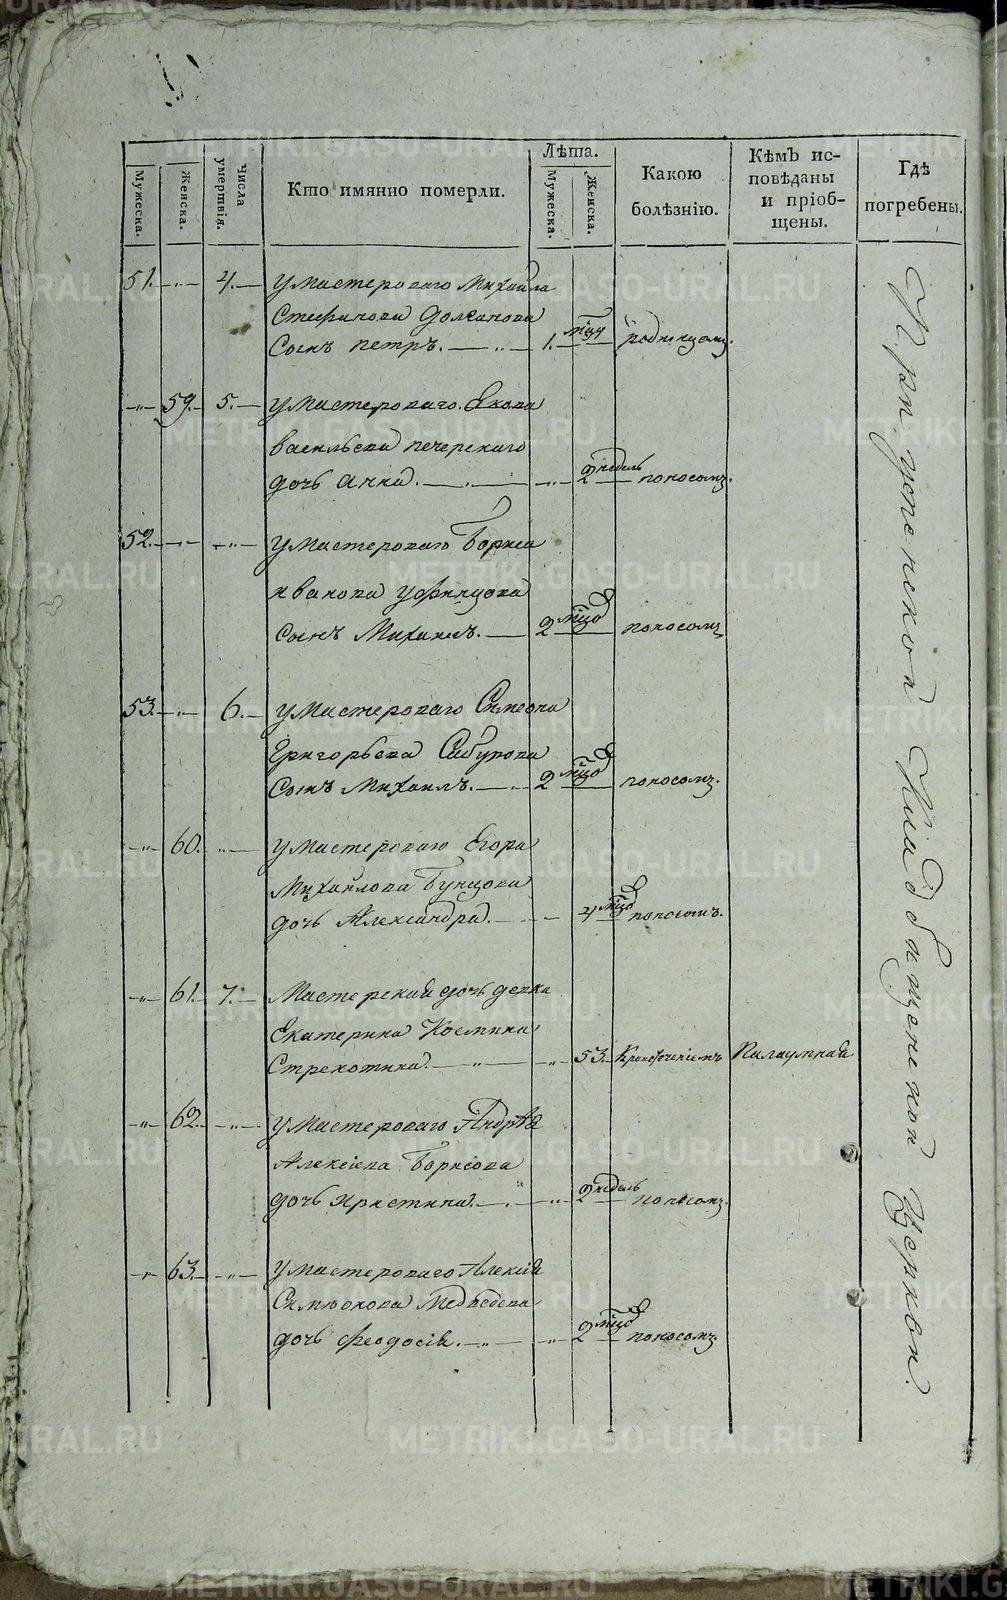 Мужеска.
Женска.
Числа умертвія.
Кто имянно померли.
Лѣта.
Мужеска.
Женска.
Какою болѣзнію.
Кѣмъ исповѣданы и пріобщены.
Гдѣ погребены.
51. 4. умастероваго Михаила
Стефанова Долганова
сынъ петръ. 1. родимцомъ.
59. 5. умастероваго Якова
васильева печерскаго
дочь Анна. 2 недель поносомъ.
52. умастероваго Бориса
иванова уфинцова
сынъ Михаилъ. 2 поносомъ
53. 6. умастероваго Симеона
Григорьева Сабурова
сынъ Михаилъ. 2 поносомъ.
60. умастероваго Егора
Михайлова Бунцова
дочь Александра. 4 поносомъ.
61. 7. Мастерская дочь девка
Екатерина Космина
Стрекотина. 53. Кровотеченіемъ
62. умастероваго Андрѣя
Алексіева Борисова
дочь христина. 2 недель поносомъ.
63. умастероваго Алексія
Симеонова Медведева
дочь Феодосія. 2 поносомъ
При успенской Кладбищенской Церкви.
METRIKI.GASO-URAL.RU